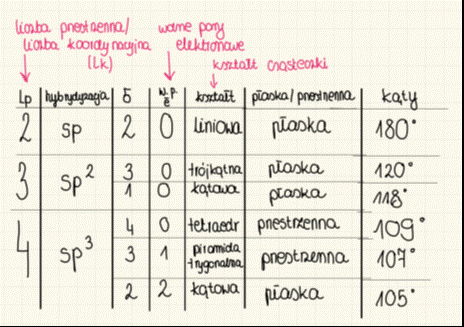 liczba przestrzenna/
liczba koordynacyjna
(Lk)
wolne pary
elektronowe
kształt cząsteczki
Lp hybrydyzacja б w.p. ē kształt płaska/przestrzenna kąty
2 sp 2 0 liniowa płaska 180°
3 sp² 3 0 trójkątna płaska 120°
1 0 kątowa płaska 118°
4 sp³ 4 0 tetraedr przestrzenna 109°
3 1 piramida trygonalna przestrzenna 107°
2 2 kątowa płaska 105°